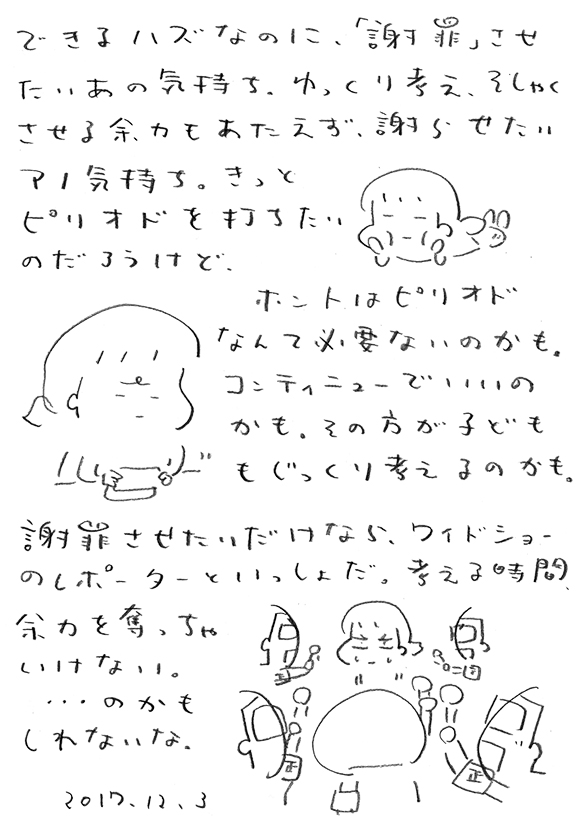 できるハズなのに、「謝罪」させ
たいあの気持ち。ゆっくり考え、そしゃく
させる余力もあたえず、謝らせたい
アノ気持ち。きっと
ピリオドを打ちたい
のだろうけど、
ホントはピリオド
なんて必要ないのかも。
コンティニューでいいの
かも。その方が子ども
もじっくり考えるのかも。
謝罪させたいだけなら、ワイドショー
のレポーターといっしょだ。考える時間、
余力を奪っちゃ
いけない。
…のかも
しれないな。
正
正
正
正
2017.12.3